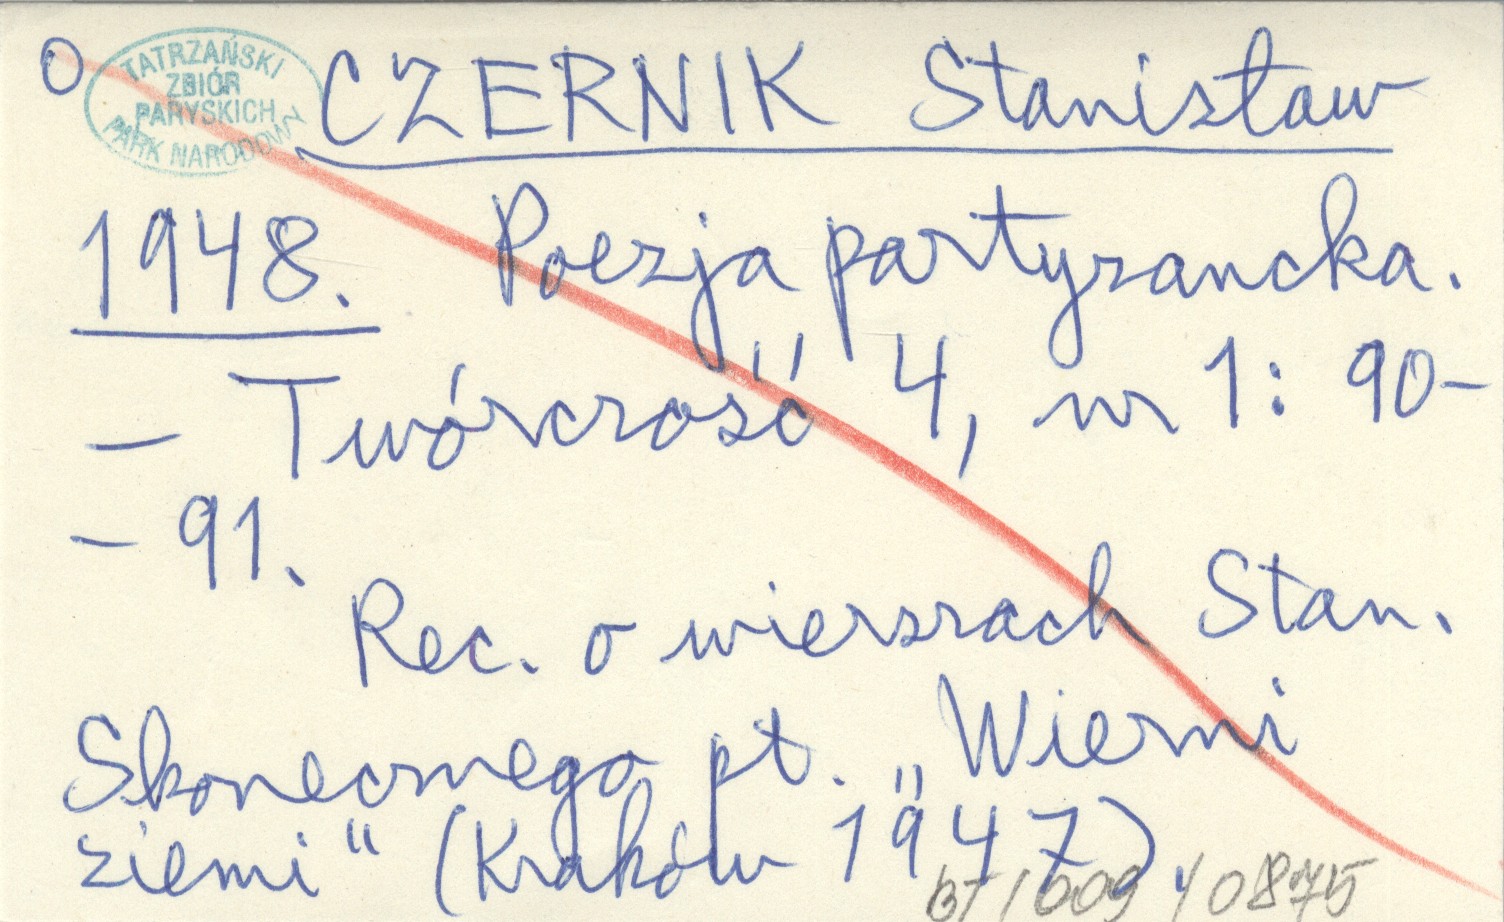 O TATRZAŃSKI ZBIÓR PARYSKICH PARK NARODOWY CZERNIK Stanisław
1948. Poezja partyzancka.
– Twórczość 4, nr 1: 90–
– 91.
Rec. o wierszach Stan.
Skonecznego pt. „Wierni
ziemi" (Kraków 1947).
BT/009/0875